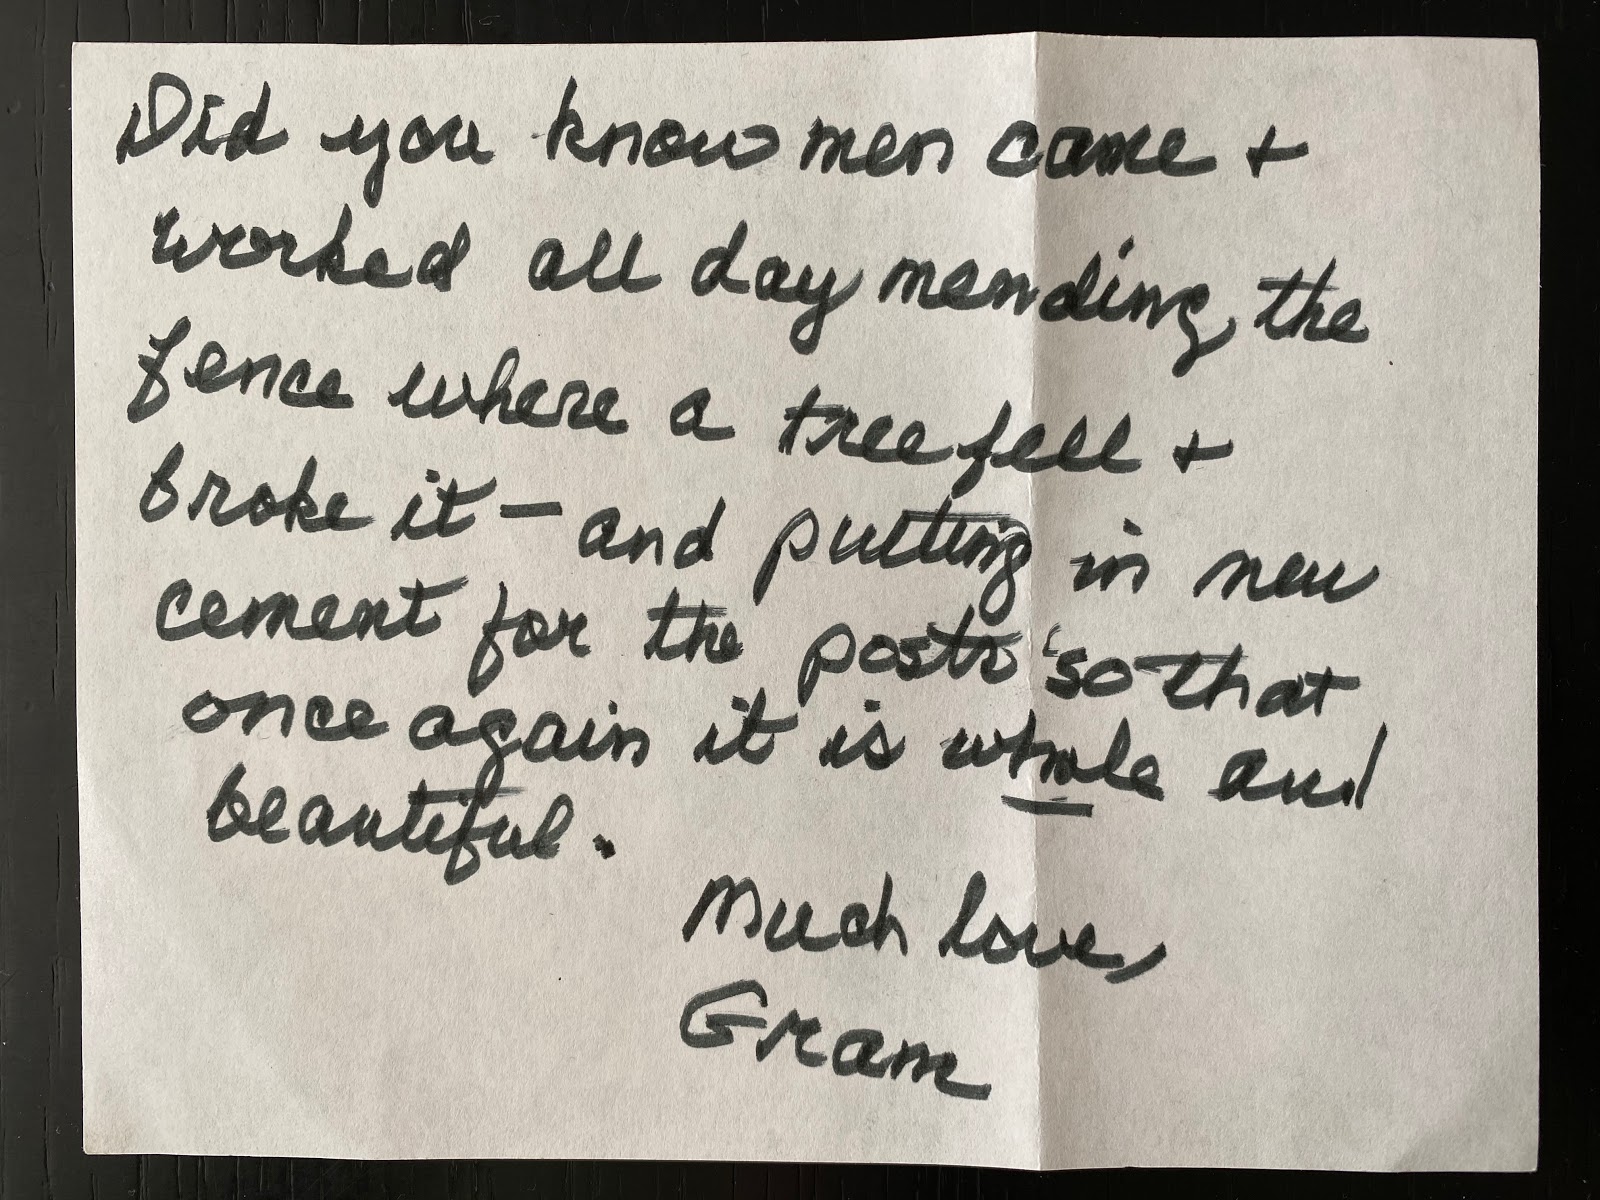 Did you know men came +
worked all day mending the
fence where a tree fell +
broke it — and putting in new
cement for the posts so that
once again it is whole and
beautiful.
Much love,
Gram